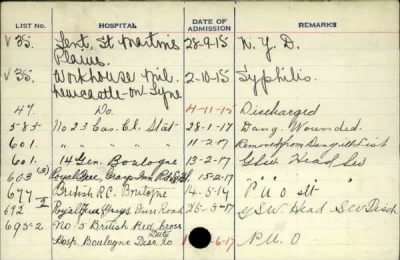 LIST NO. HOSPITAL DATE OF ADMISSION REMARKS
V 35. Tent, St Martins 28-9-15 N. Y. D.
Plains.
V 35. Workhouse Mil. 2-10-15 Syphilis.
Newcastle-on Tyne
47. Do. 4-11-15 Discharged
585 No 23 Cas. Cl. Stat 28-1-17 Dang. Wounded.
601. " " " " 11-2-17 Removed from Dang ill List
601. 14 Gen. Boulogne 13-2-17 GSW Head Sev
603 (3) Royal Free Grays Inn Rd 15-2-17 " " "
677 British R.C. Boulogne 14-5-17 P U O slt
692 Royal Free Grays Inn Road 25-5-17 GSW. Head Sev Disch
695-2 No. 5 British Red Cross
Hosp. Boulogne Disc to Duty -6-17 N.U.O